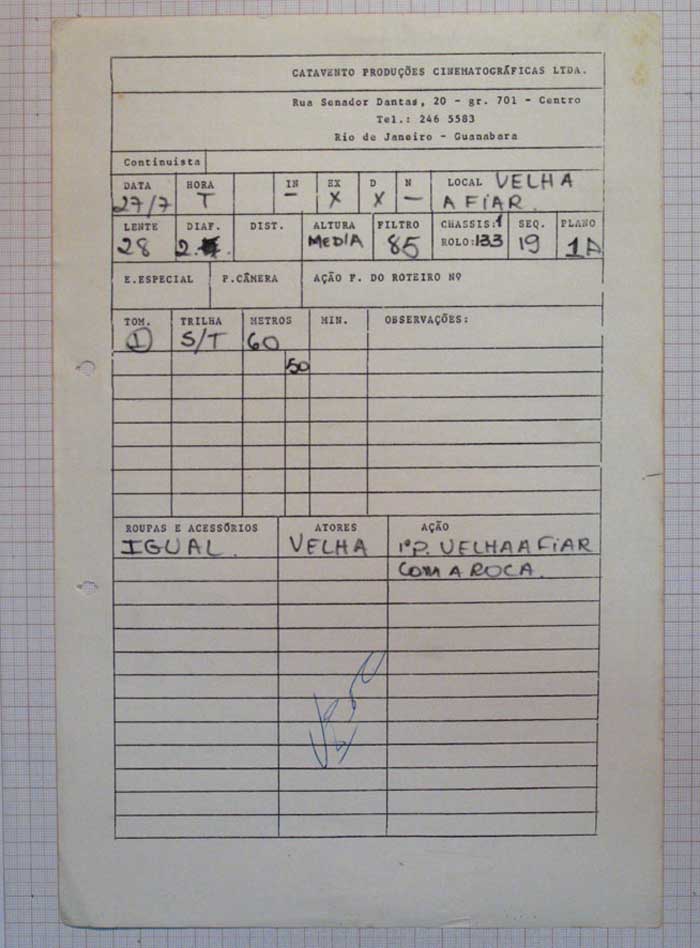 CATAVENTO PRODUÇÕES CINEMATOGRÁFICAS LTDA.
Rua Senador Dantas, 20 - gr. 701 - Centro
Tel.: 246 5583
Rio de Janeiro - Guanabara
Continuista
DATA HORA IN EX D N LOCAL VELHA
27/7 T — X X — A FIAR
LENTE DIAF. DIST. ALTURA FILTRO CHASSIS:1 SEQ. PLANO
28 2. MEDIA 85 ROLO:133 19 1A
E.ESPECIAL P.CÂMERA AÇÃO F. DO ROTEIRO Nº
TOM. TRILHA METROS MIN. OBSERVAÇÕES:
1 S/T 60
50
ROUPAS E ACESSÓRIOS ATORES AÇÃO
IGUAL. VELHA 1ºP. VELHA A FIAR
COM A ROCA.